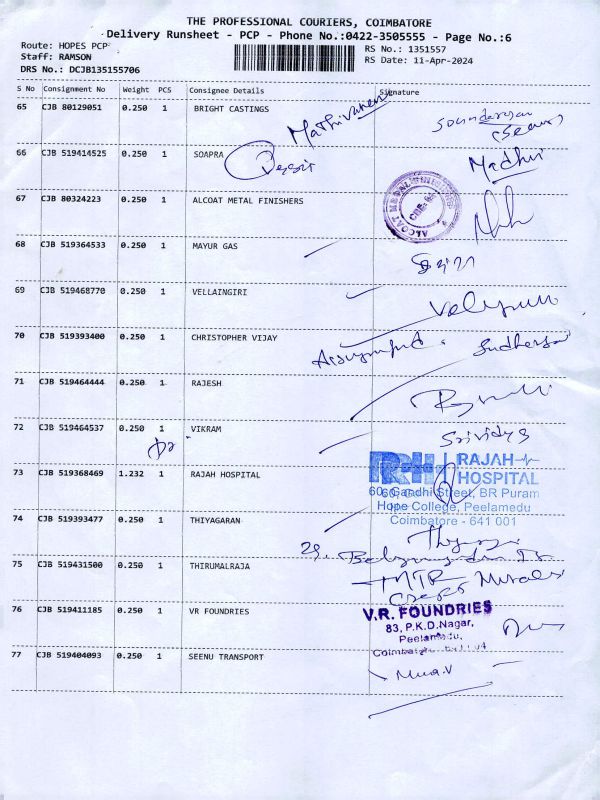 THE PROFESSIONAL COURIERS, COIMBATORE
Delivery Runsheet - PCP - Phone No.:0422-3505555 - Page No.:6
Route: HOPES PCP
RS No.: 1351557
Staff: RAMSON
RS Date: 11-Apr-2024
DRS No.: DCJB135155706
S No Consignment No Weight PCS Consignee Details Signature
65 CJB 80129051 0.250 1 BRIGHT CASTINGS
Mathivanan
66 CJB 519414525 0.250 1 SOAPRA Madhu
67 CJB 80324223 0.250 1 ALCOAT METAL FINISHERS
68 CJB 519364533 0.250 1 MAYUR GAS
69 CJB 519468770 0.250 1 VELLAINGIRI
70 CJB 519393400 0.250 1 CHRISTOPHER VIJAY
71 CJB 519464444 0.250 1 RAJESH
72 CJB 519464537 0.250 1 VIKRAM Srividya
RAJAH
HOSPITAL
73 CJB 519368469 1.232 1 RAJAH HOSPITAL
60, Gandhi Street, BR Puram
Hope College, Peelamedu
Coimbatore - 641 001
74 CJB 519393477 0.250 1 THIYAGARAN
75 CJB 519431500 0.250 1 THIRUMALRAJA
MTR
76 CJB 519411185 0.250 1 VR FOUNDRIES
V.R. FOUNDRIES
83, P.K.D.Nagar,
Peelamedu,
77 CJB 519404093 0.250 1 SEENU TRANSPORT